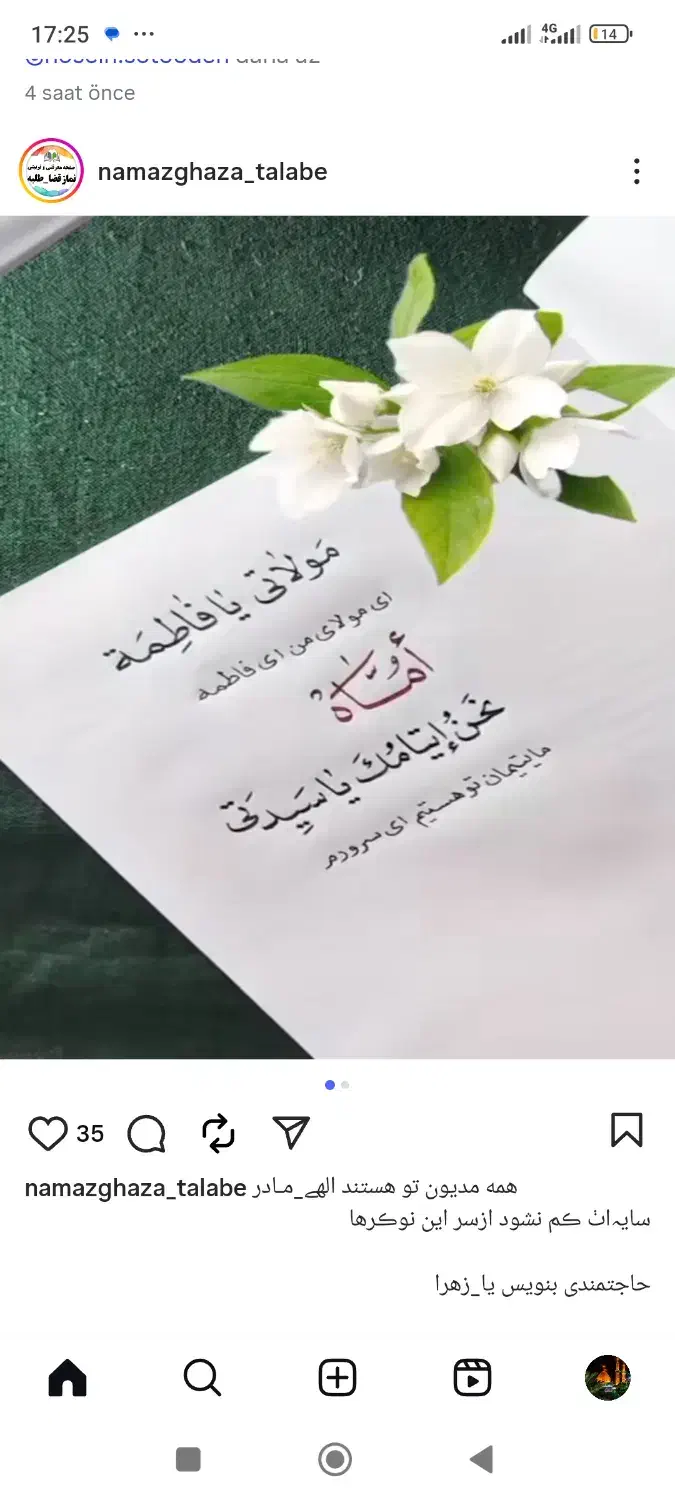 17:25
4G
14
4 saat önce
نماز قضا_طلبه
namazghaza_talabe
مَولاتی یا فاطِمَة
ای مولای من ای فاطمه
أُمّاهُ
نَحنُ إیتامُكَ یا سَیِدَتی
ما یتیمان تو هستیم ای سرورم
35
namazghaza_talabe همه مدیون تو هستند الهے_مـادر
سایہ‌اتْ ڪم نشود ازسر این نوڪرها
حاجتمندی بنویس یا_زهرا